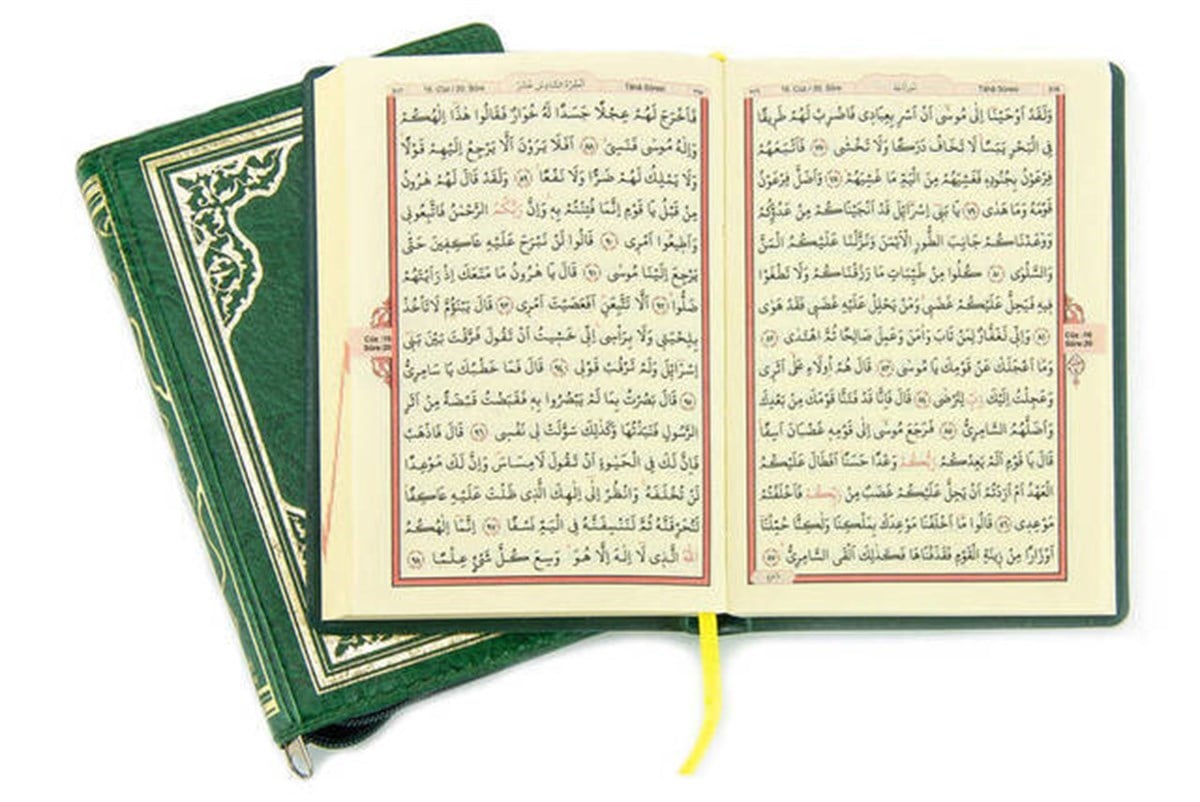 Tâhâ Sûresi سورة طه 16. Cüz / 20. Sûre
وَلَقَدْ اَوْحَيْنَٓا اِلٰى مُوسٰٓى اَنْ اَسْرِ بِعِبَادٖى فَاضْرِبْ لَهُمْ طَرٖيقًا
فِى الْبَحْرِ يَبَسًا لَا تَخَافُ دَرَكًا وَلَا تَخْشٰى ﴿٧٧﴾ فَاَتْبَعَهُمْ
فِرْعَوْنُ بِجُنُودِهٖ فَغَشِيَهُمْ مِنَ الْيَمِّ مَا غَشِيَهُمْ ﴿٧٨﴾ وَاَضَلَّ فِرْعَوْنُ
قَوْمَهُ وَمَا هَدٰى ﴿٧٩﴾ يَا بَنٖٓى اِسْرَٓائٖلَ قَدْ اَنْجَيْنَاكُمْ مِنْ عَدُوِّكُمْ
وَوٰعَدْنَاكُمْ جَانِبَ الطُّورِ الْاَيْمَنَ وَنَزَّلْنَا عَلَيْكُمُ الْمَنَّ
وَالسَّلْوٰى ﴿٨٠﴾ كُلُوا مِنْ طَيِّبَاتِ مَا رَزَقْنَاكُمْ وَلَا تَطْغَوْا
فٖيهِ فَيَحِلَّ عَلَيْكُمْ غَضَبٖى وَمَنْ يَحْلِلْ عَلَيْهِ غَضَبٖى فَقَدْ هَوٰى
﴿٨١﴾ وَاِنّٖى لَغَفَّارٌ لِمَنْ تَابَ وَاٰمَنَ وَعَمِلَ صَالِحًا ثُمَّ اهْتَدٰى ﴿٨٢﴾
وَمَٓا اَعْجَلَكَ عَنْ قَوْمِكَ يَا مُوسٰى ﴿٨٣﴾ قَالَ هُمْ اُولَٓاءِ عَلٰٓى اَثَرٖى
وَعَجِلْتُ اِلَيْكَ رَبِّ لِتَرْضٰى ﴿٨٤﴾ قَالَ فَاِنَّا قَدْ فَتَنَّا قَوْمَكَ مِنْ بَعْدِكَ
وَاَضَلَّهُمُ السَّامِرِىُّ ﴿٨٥﴾ فَرَجَعَ مُوسٰٓى اِلٰى قَوْمِهٖ غَضْبَانَ اَسِفًا
قَالَ يَا قَوْمِ اَلَمْ يَعِدْكُمْ رَبُّكُمْ وَعْدًا حَسَنًا اَفَطَالَ عَلَيْكُمُ
الْعَهْدُ اَمْ اَرَدْتُمْ اَنْ يَحِلَّ عَلَيْكُمْ غَضَبٌ مِنْ رَبِّكُمْ فَاَخْلَفْتُمْ
مَوْعِدٖى ﴿٨٦﴾ قَالُوا مَٓا اَخْلَفْنَا مَوْعِدَكَ بِمَلْكِنَا وَلٰكِنَّا حُمِّلْنَٓا
اَوْزَارًا مِنْ زٖينَةِ الْقَوْمِ فَقَذَفْنَاهَا فَكَذٰلِكَ اَلْقَى السَّامِرِىُّ ﴿٨٧﴾
Cüz :16
Sûre:20
Tâhâ Sûresi الجزء السادس عشر 16. Cüz / 20. Sûre
فَاَخْرَجَ لَهُمْ عِجْلًا جَسَدًا لَهُ خُوَارٌ فَقَالُوا هٰذَٓا اِلٰهُكُمْ
وَاِلٰهُ مُوسٰى فَنَسِىَ ﴿٨٨﴾ اَفَلَا يَرَوْنَ اَلَّا يَرْجِعُ اِلَيْهِمْ قَوْلًا
وَلَا يَمْلِكُ لَهُمْ ضَرًّا وَلَا نَفْعًا ﴿٨٩﴾ وَلَقَدْ قَالَ لَهُمْ هٰرُونُ
مِنْ قَبْلُ يَا قَوْمِ اِنَّمَا فُتِنْتُمْ بِهٖ وَاِنَّ رَبَّكُمُ الرَّحْمٰنُ فَاتَّبِعُونٖى
وَاَطٖيعُٓوا اَمْرٖى ﴿٩٠﴾ قَالُوا لَنْ نَبْرَحَ عَلَيْهِ عَاكِفٖينَ حَتّٰى
يَرْجِعَ اِلَيْنَا مُوسٰى ﴿٩١﴾ قَالَ يَا هٰرُونُ مَا مَنَعَكَ اِذْ رَاَيْتَهُمْ
ضَلُّٓوا ﴿٩٢﴾ اَلَّا تَتَّبِعَنِ اَفَعَصَيْتَ اَمْرٖى ﴿٩٣﴾ قَالَ يَبْنَؤُمَّ لَا تَاْخُذْ
بِلِحْيَتٖى وَلَا بِرَاْسٖى اِنّٖى خَشٖيتُ اَنْ تَقُولَ فَرَّقْتَ بَيْنَ بَنٖٓى
اِسْرَٓائٖلَ وَلَمْ تَرْقُبْ قَوْلٖى ﴿٩٤﴾ قَالَ فَمَا خَطْبُكَ يَا سَامِرِىُّ
﴿٩٥﴾ قَالَ بَصُرْتُ بِمَا لَمْ يَبْصُرُوا بِهٖ فَقَبَضْتُ قَبْضَةً مِنْ اَثَرِ
الرَّسُولِ فَنَبَذْتُهَا وَكَذٰلِكَ سَوَّلَتْ لٖى نَفْسٖى ﴿٩٦﴾ قَالَ فَاذْهَبْ
فَاِنَّ لَكَ فِى الْحَيٰوةِ اَنْ تَقُولَ لَا مِسَاسَ وَاِنَّ لَكَ مَوْعِدًا
لَنْ تُخْلَفَهُ وَانْظُرْ اِلٰٓى اِلٰهِكَ الَّذٖى ظَلْتَ عَلَيْهِ عَاكِفًا
لَنُحَرِّقَنَّهُ ثُمَّ لَنَنْسِفَنَّهُ فِى الْيَمِّ نَسْفًا ﴿٩٧﴾ اِنَّمَٓا اِلٰهُكُمُ
اللّٰهُ الَّذٖى لَٓا اِلٰهَ اِلَّا هُوَ وَسِعَ كُلَّ شَىْءٍ عِلْمًا ﴿٩٨﴾
Cüz :16
Sûre:20